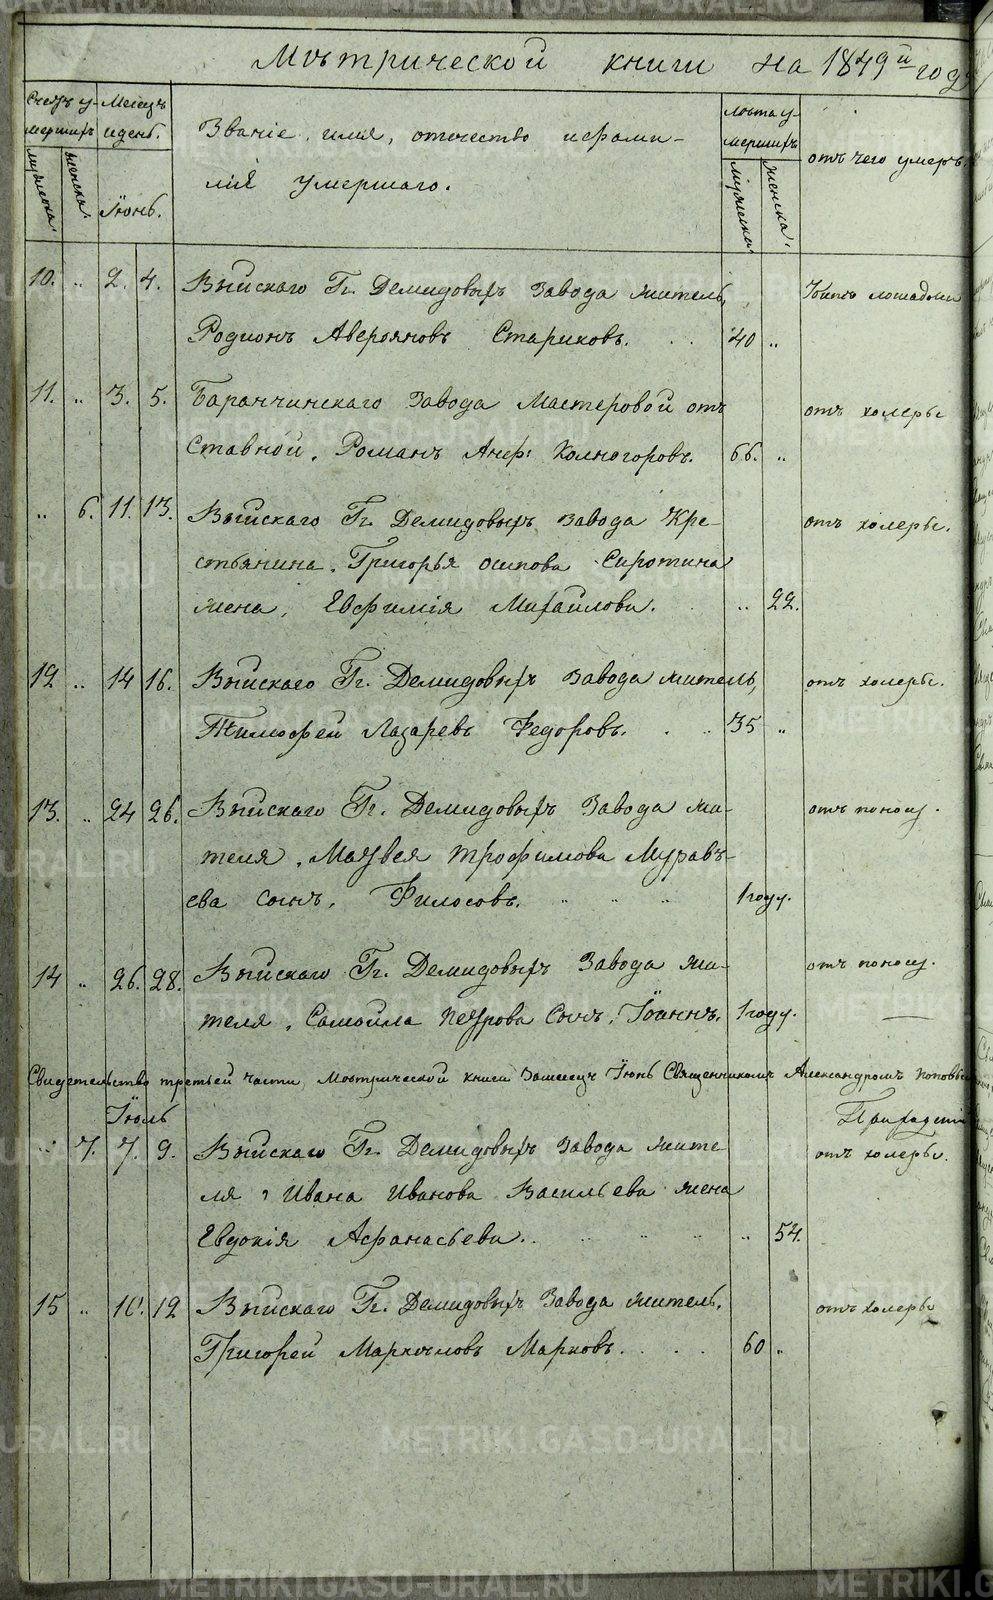 Мѣтрической книги на 1849й году
Счетъ у-
мершихъ
Месецъ
и день.
Званіе, имя, отечество и фами-
лія умершаго.
Лѣта у-
мершихъ
отъ чего умеръ.
мужеска.
женска.
Іюнь.
мужеска
женска.
10. „ 2. 4. Выйскаго Гг. Демидовыхъ Завода житель,
Родионъ Аверояновъ Стариковъ. 40 „
Убитъ лошадми
11. „ 3. 5. Баранчинскаго Завода Мастеровой от
Ставной, Романъ Анф: Холмогоровъ. 66. „
отъ холеры
„ 6. 11. 13. Выйскаго Гг. Демидовыхъ завода Кре-
стьянина, Григорья осипова Сиротина
жена, Евфимія Михайлова. „ 22.
отъ холеры.
12 „ 14 16. Выйскаго Гг. Демидовыхъ Завода житель,
Тимофей Лазаревъ Федоровъ. 35 „
отъ холеры.
13. „ 24 26. Выйскаго Гг. Демидовыхъ Завода жи-
теля, Матвея Трофимова Муравь-
ева сынъ, Филосовъ. „ „ „ 1 году.
отъ поносу.
14 „ 26. 28. Выйскаго Гг. Демидовыхъ Завода жи-
теля, Самойла Петрова Сынъ, Іоаннъ. 1 году.
отъ поносу.
Свидетельство третьей части, Мѣтрической книги За месецъ Іюнь Священникомъ Александромъ Поповы
Іюль
„ 7. 7. 9. Выйскаго Гг. Демидовыхъ Завода жите
ля, Ивана Иванова Васильева жена
Евдокія Афанасьева. „ „ „ „ 54.
отъ холеры.
15 „ 10. 12 Выйскаго Гг. Демидовыхъ Завода житель,
Григорей Маркеловъ Марковъ. 60 „
отъ холеры
METRIKI.GASO-URAL.RU